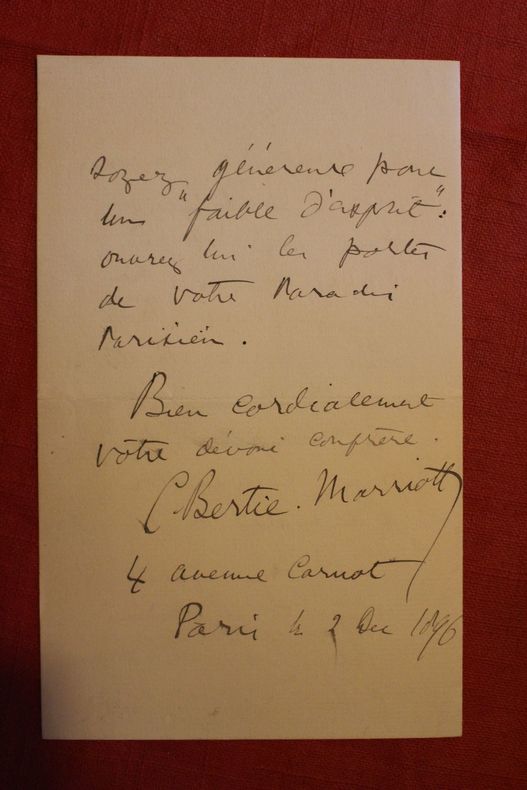 soyez généreuse pour
un "faible d'esprit":
ouvrez lui les portes
de votre Paradis
Parisien.
Bien cordialement
votre dévoué confrère.
C Bertie-Marriott
4 avenue Carnot
Paris le 2 Dec 1896